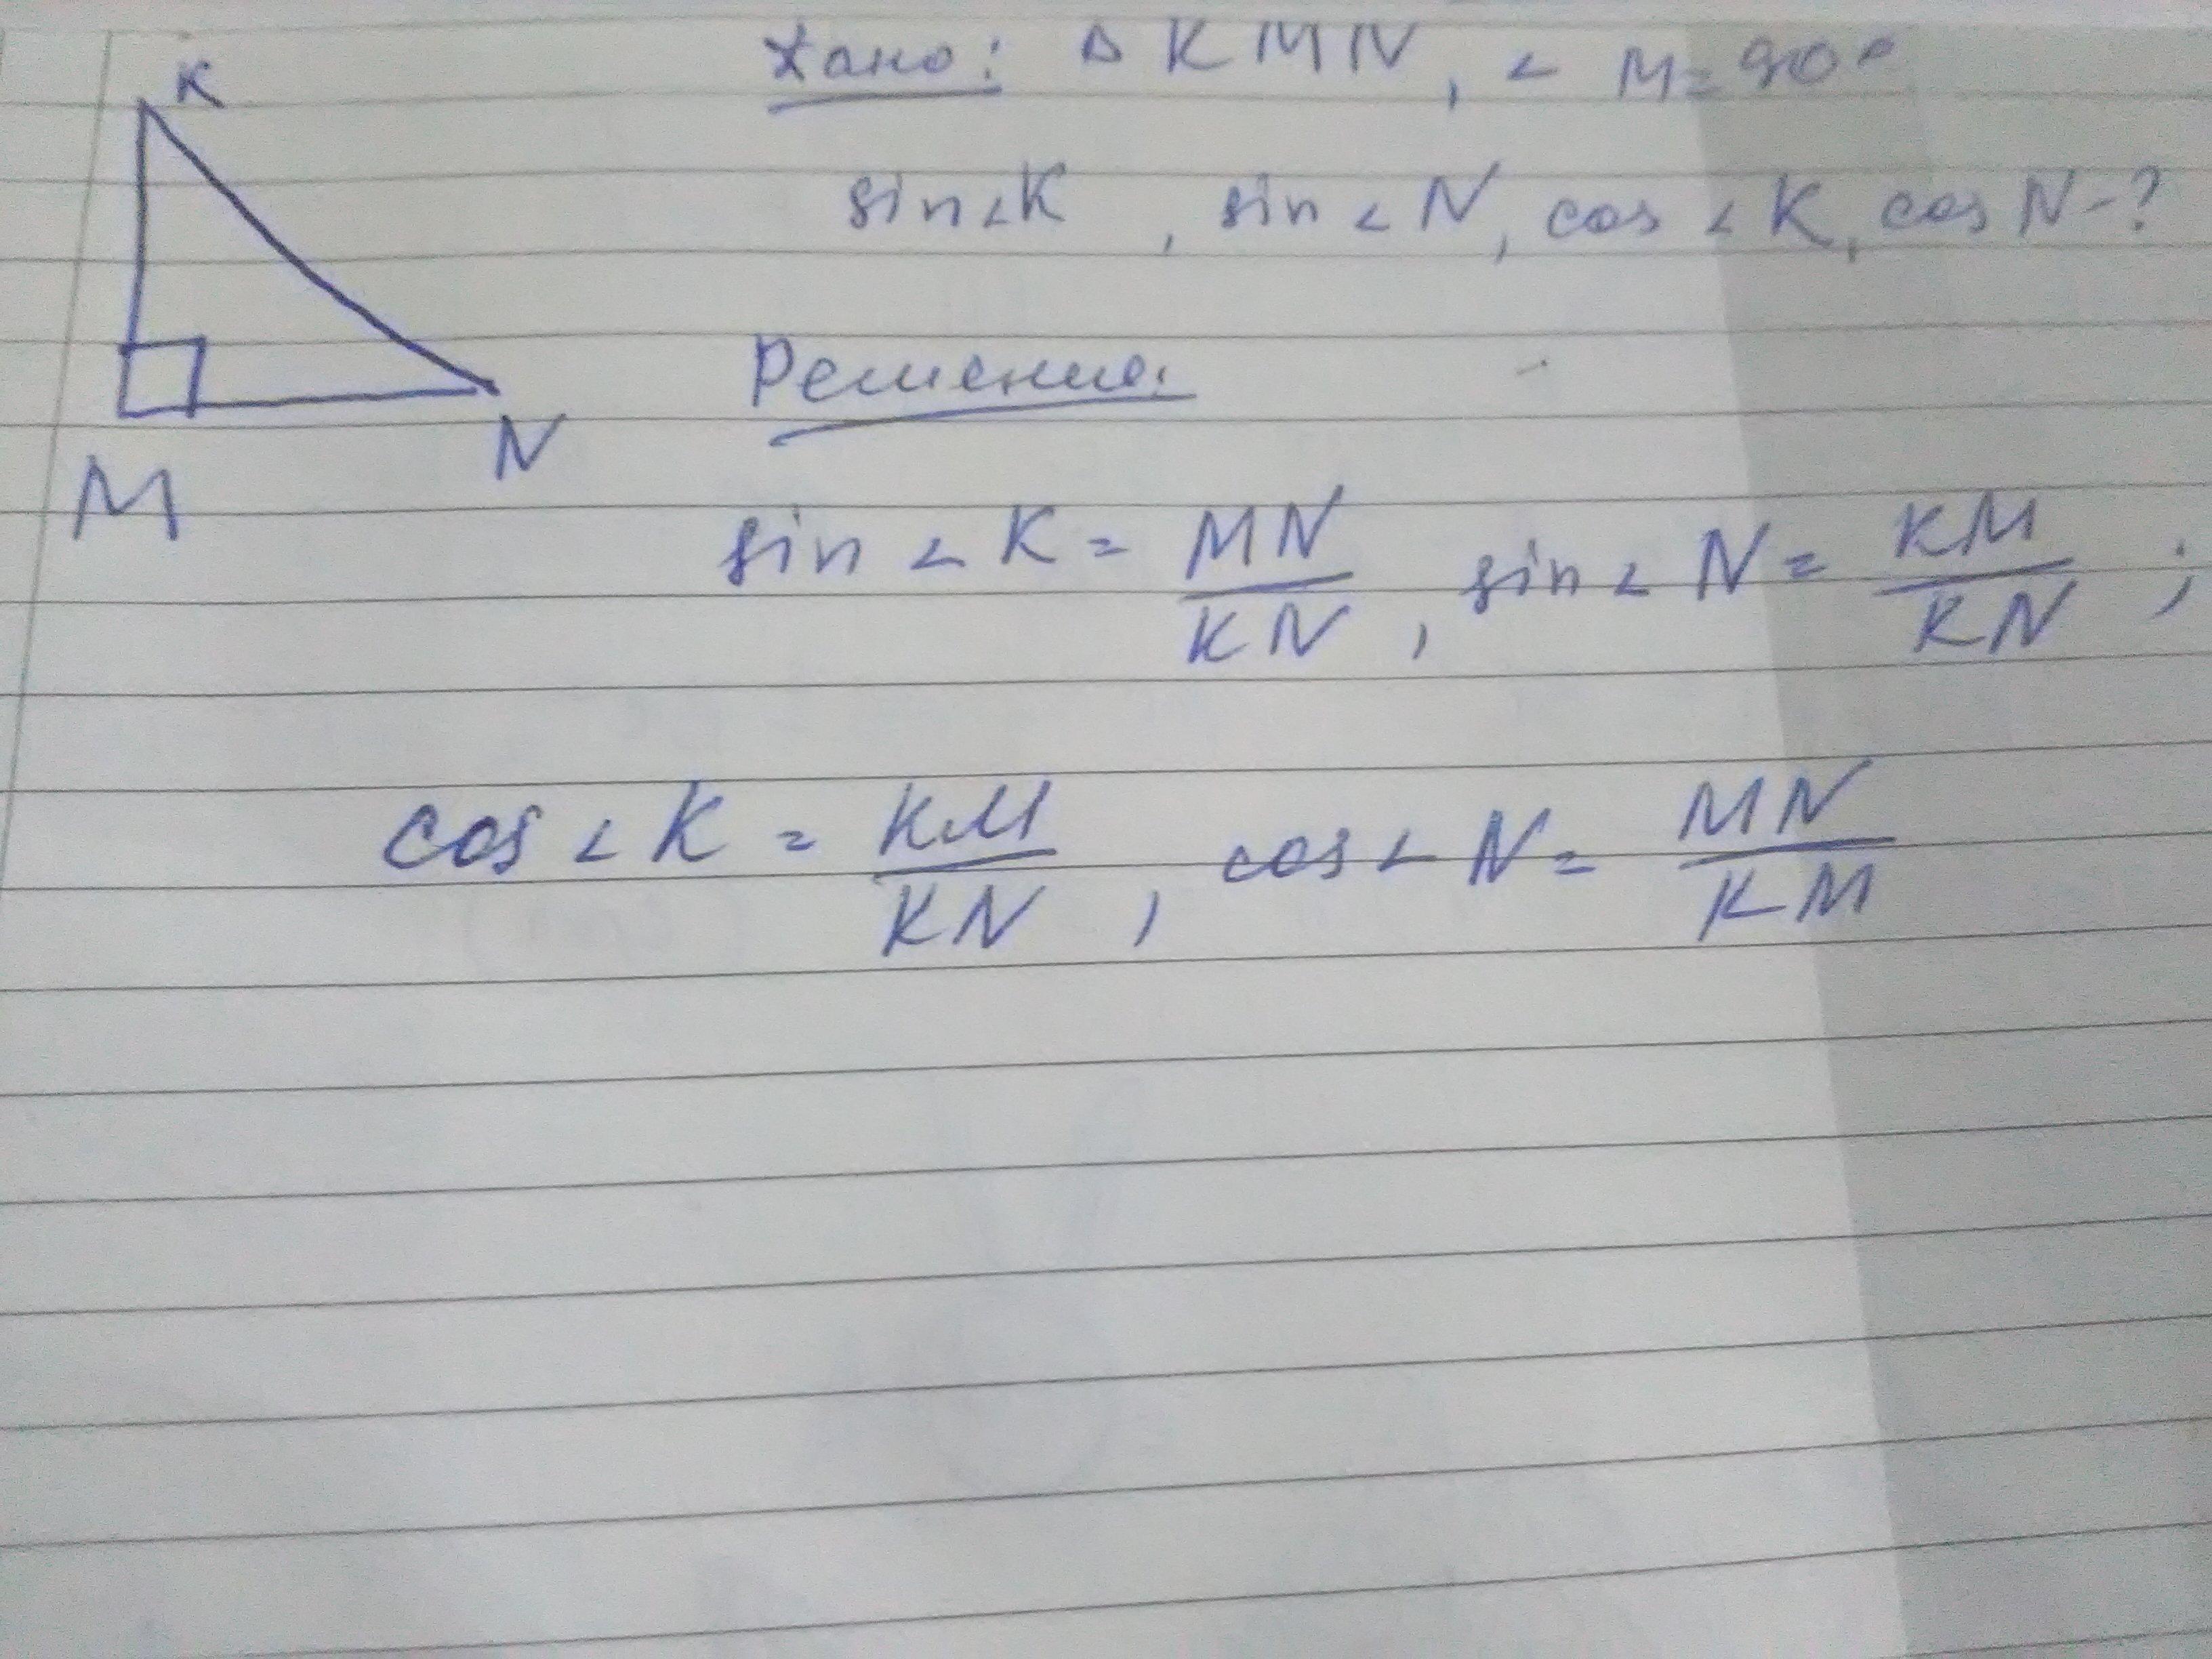 K
Дано: Δ K M N, ∠ M = 90°
sin∠K, sin ∠ N, cos ∠ K, cos N-?
Решение:
N
M
sin ∠ K = MN/KN, sin ∠ N = KM/KN;
cos ∠ K = KM/KN, cos ∠ N = MN/KM